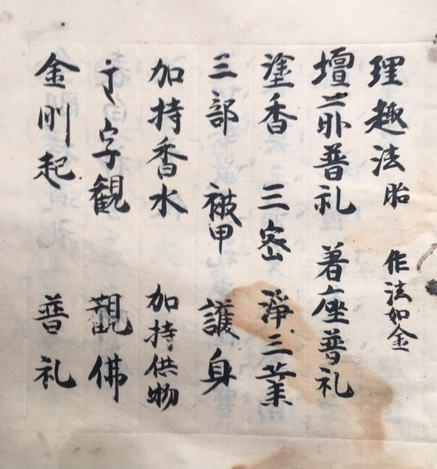 理趣法 胎 作法如金
壇前普礼 著座普礼
塗香 三密 淨三業
三部 被甲 護身
加持香水 加持供物
字観 觀佛
金剛起 普礼